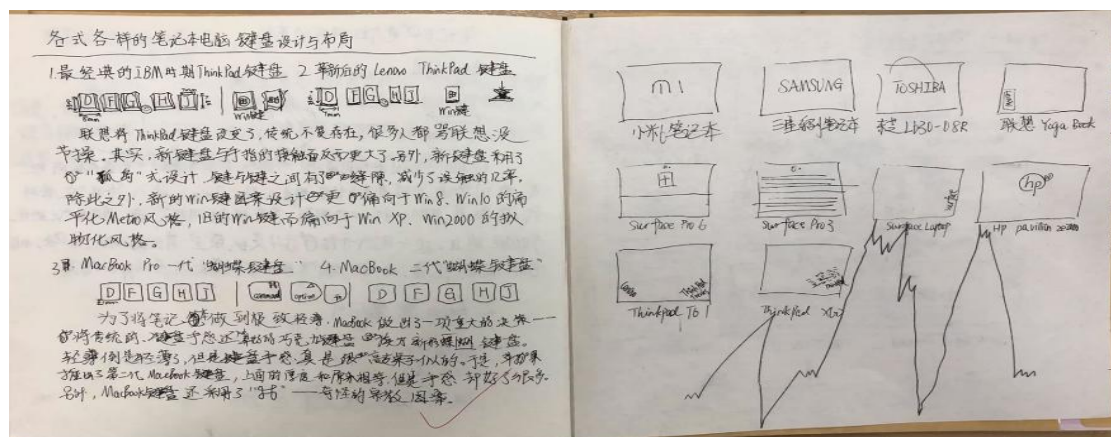 各式各样的笔记本电脑键盘设计与布局
1.最经典的IBM时期ThinkPad键盘 2.革新后的Lenovo ThinkPad键盘
D F G H J D F G H J
Win键 Win键
联想将ThinkPad键盘改变了,传统不复存在,很多人都骂联想没
节操。其实,新键盘与手指的接触面反而更大了。另外,新键盘采用了
"孤岛"式设计,键与键之间有了缝隙,减少了误触的几率。
除此之外,新的Win键图案设计更偏向于Win8、Win10的扁
平化Metro风格,旧的Win键而偏向于Win XP、Win2000的拟
物化风格。
3.MacBook Pro一代"蝴蝶键盘" 4.MacBook二代"蝴蝶键盘"
D F G H J command option D F G H J
为了将笔记本做到极致轻薄,MacBook做出了一项重大的决策——
将传统的、键盘手感还算好的巧克力键盘换为新的蝴蝶键盘。
轻薄倒是轻薄了,但是键盘手感真是
第二代MacBook键盘,上面的厚度和原来相等,但是手感却好了很多。
另外,MacBook键盘还采用了
mi
SAMSUNG
TOSHIBA
小米笔记本
三星系列笔记本
东芝L830-08R
联想Yoga Book
hp
Surface Pro 6
Surface Pro3
Surface Laptop
HP pavilion
Thinkpad T61
ThinkPad